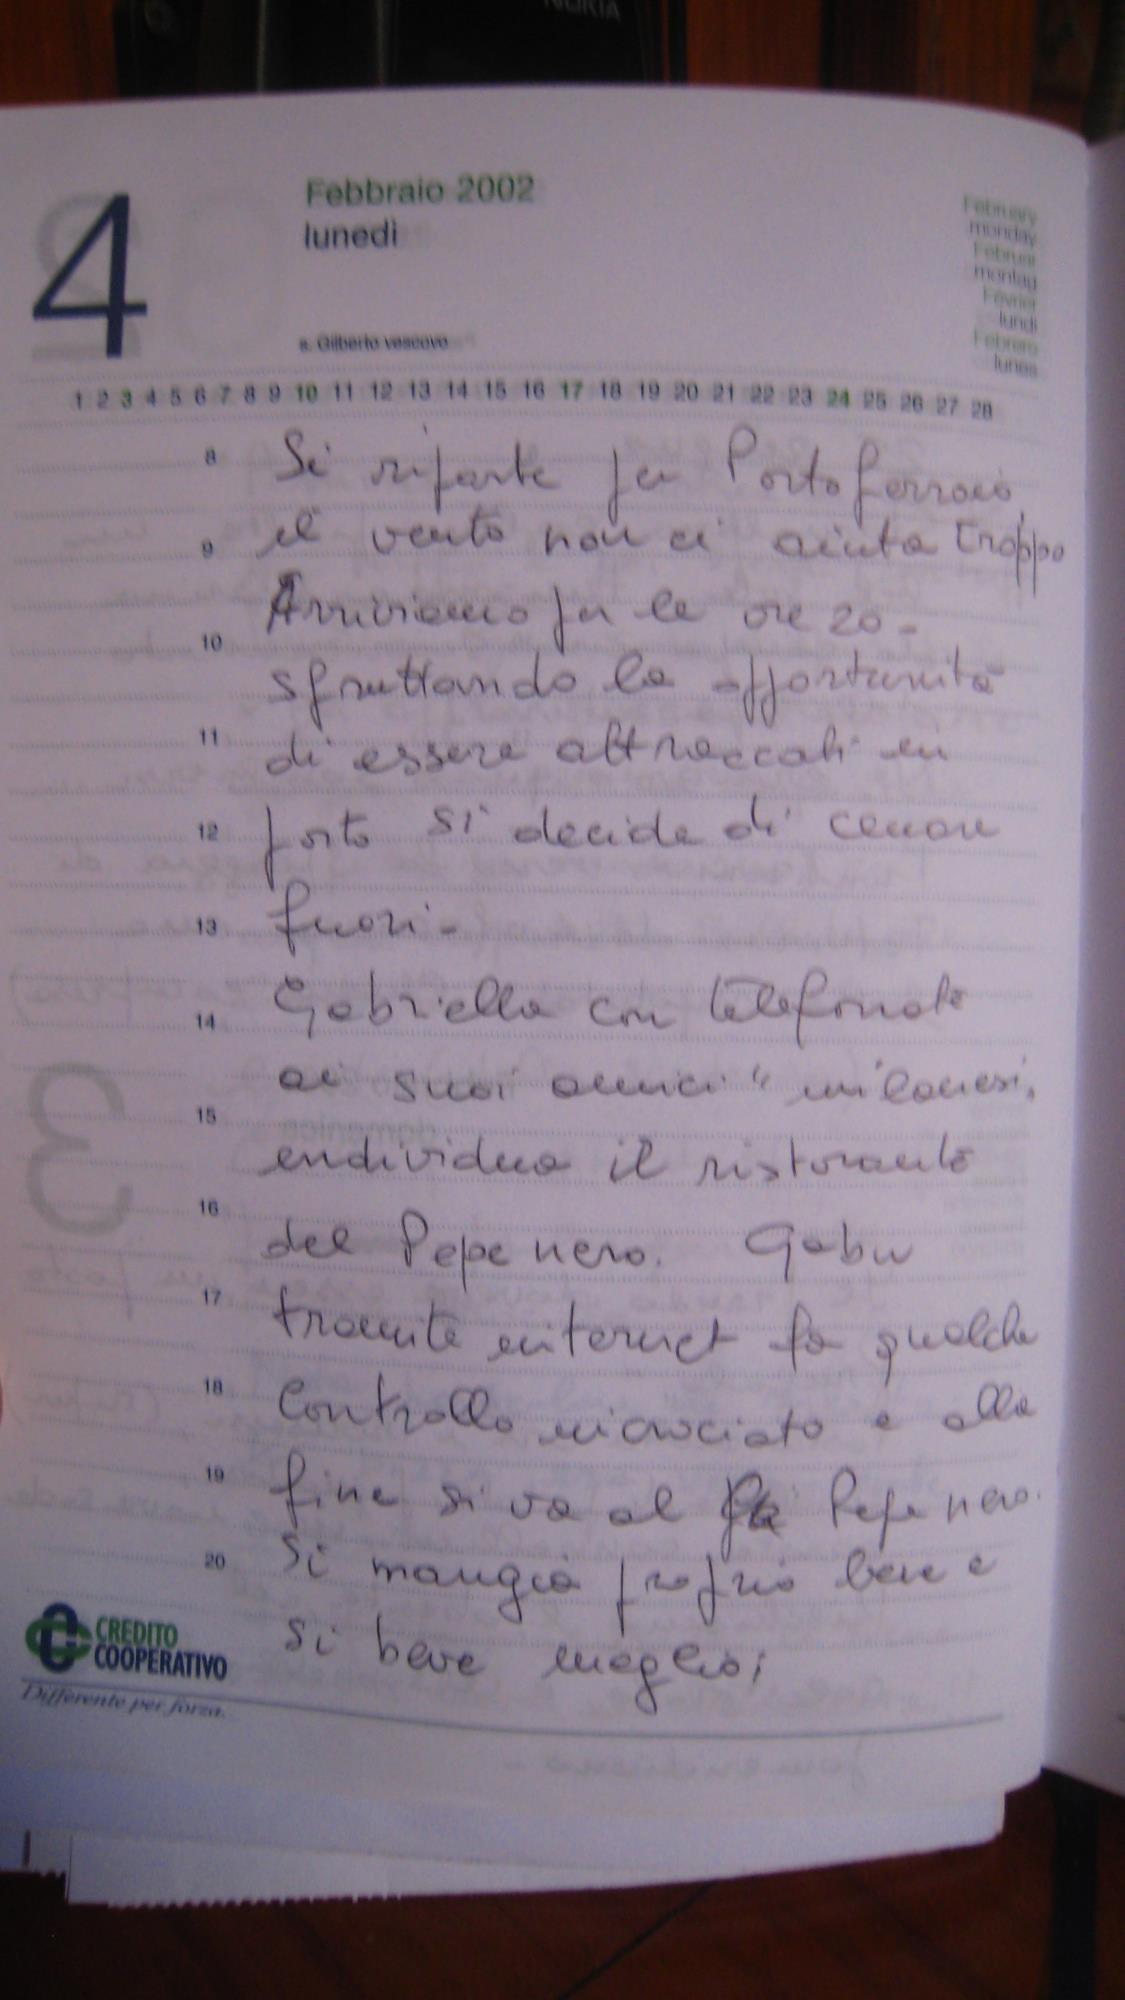 NOKIA
4
Febbraio 2002
lunedì
s. Gilberto vescovo
February
monday
Februar
montag
Février
lundi
Febrero
lunes
1 2 3 4 5 6 7 8 9 10 11 12 13 14 15 16 17 18 19 20 21 22 23 24 25 26 27 28
8 Si riparte per Portoferraio,
9 il vento non ci aiuta troppo
Arriviamo per le ore 20-
10 sfruttando la opportunità
11 di essere attraccati in
12 porto si decide di cenare
13 fuori-
14 Gabriella con telefonate
ai suoi amici "milanesi,
15 individua il ristorante
16 del Pepe nero. Gabri
17 tramite internet fa qualche
18 Controllo incrociato e alla
19 fine si va al Pepe nero.
20 Si mangia proprio bene e
si beve meglio;
3
CREDITO
COOPERATIVO
Differente per forza.